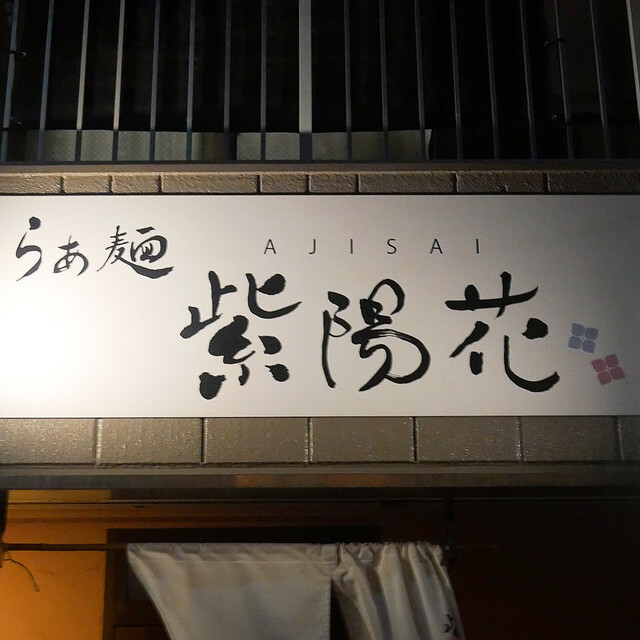 らぁ麺
AJISAI
紫陽花